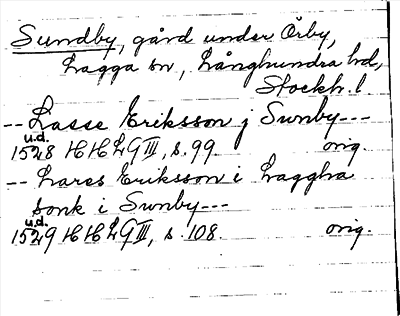 Sundby, gård under Örby,
Lagga sn, Långhundra hd,
Stockh. l.
-- Lasse Eriksson j Sunby ---
u.d.
1528 HHLG III, s. 99. orig.
-- Lares Eriksson i Laggha
sonk i Sunby ---
u.d.
1529 HHLG III, s. 108 orig.